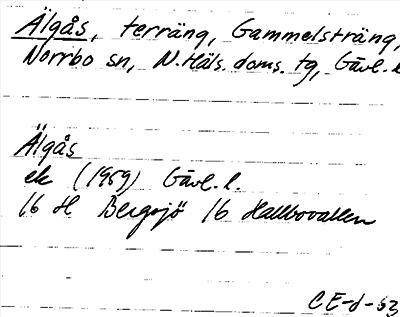 Älgås, terräng, Gammelsträng,
Norrbo sn, N. Häls. doms. tg, Gävl. l
Älgås
ek (1959) Gävl. l.
16 H Bergsjö 16 Hallbovallen
CE-d-63